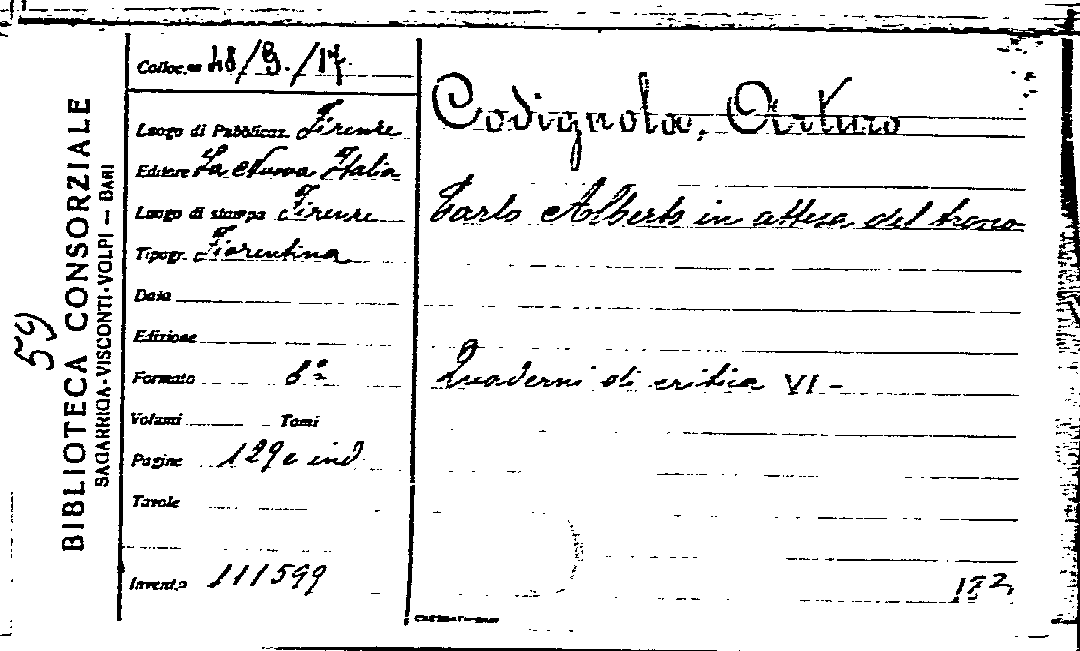 59
BIBLIOTECA CONSORZIALE
SAGARRIGA-VISCONTI-VOLPI — BARI
Colloc.ne 48/G./17.
Luogo di Pubblicaz. Firenze
Editore La Nuova Italia
Luogo di stampa Firenze
Tipogr. Fiorentina
Data
Edizione
Formato 8°
Volumi Tomi
Pagine 129 e ind
Tavole
Invent.o 111599
Codignola, Arturo
Carlo Alberto in attesa del trono
Quaderni di critica VI -